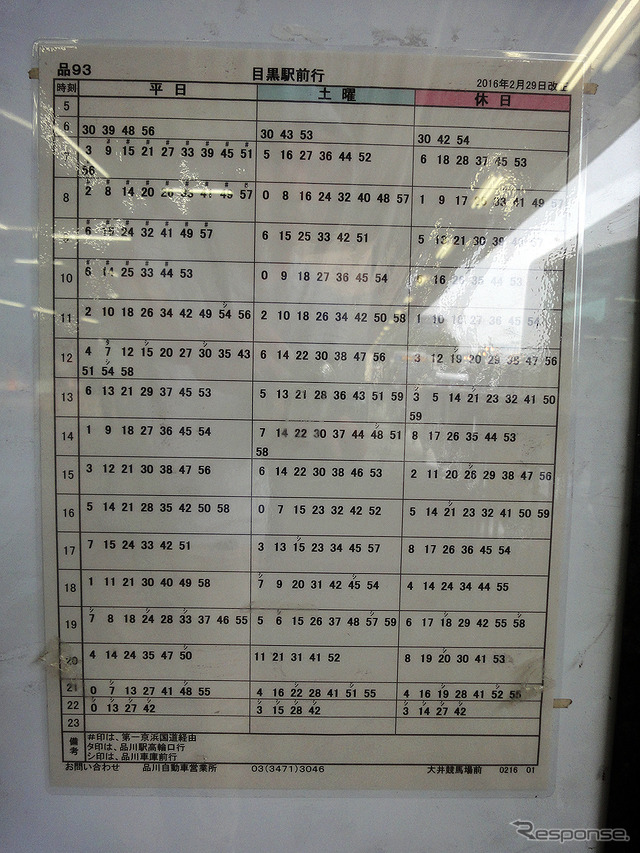 品93 目黒駅前行 2016年2月29日改正
時刻 平日 土曜 休日
5
6 30 39 48 56 30 43 53 30 42 54
7 # # # # # # # #
3 9 15 21 27 33 39 45 51 5 16 27 36 44 52 6 18 28 37 45 53
56
8 2 8 14 20 26 33 41 49 57 0 8 16 24 32 40 48 57 1 9 17 33 41 49 57
9 6 15 24 32 41 49 57 6 15 25 33 42 51 5 13 21 30 39
10 6 14 25 33 44 53 0 9 18 27 36 45 54 16 44 53
11 2 10 18 26 34 42 49 54 56 2 10 18 26 34 42 50 58 1 10 18 27 36 45 54
12 4 7 12 15 20 27 30 35 43 6 14 22 30 38 47 56 3 12 19 20 29 38 47 56
51 54 58
13 6 13 21 29 37 45 53 5 13 21 28 36 43 51 59 3 5 14 21 23 32 41 50
59
14 1 9 18 27 36 45 54 7 14 22 30 37 44 48 51 8 17 26 35 44 53
58
15 3 12 21 30 38 47 56 6 14 22 30 38 46 53 2 11 20 26 29 38 47 56
16 5 14 21 28 35 42 50 58 0 7 15 23 32 42 52 5 14 21 23 32 41 50 59
17 7 15 24 33 42 51 3 13 15 23 34 45 57 8 17 26 36 45 54
18 1 11 21 30 40 49 58 7 9 20 31 42 45 54 4 14 24 34 44 55
19 7 8 18 24 28 33 37 46 55 5 6 15 26 37 48 57 59 6 17 18 29 42 55 58
20 4 14 24 35 47 50 11 21 31 41 52 8 19 20 30 41 53
21 0 7 13 27 41 48 55 4 16 22 28 41 51 55 4 16 19 28 41 52 55
22 0 13 27 42 3 15 28 42 3 14 27 42
23
備考 #印は、第一京浜国道経由
タ印は、品川駅高輪口行
シ印は、品川車庫前行
お問い合わせ 品川自動車営業所 03(3471)3046 大井競馬場前 0216 01
Response.